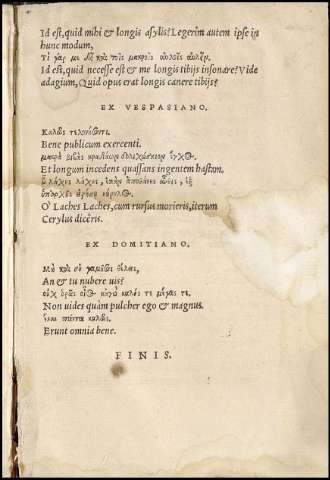 Id est, quid mihi & longis asylis? Legerim autem ipse in
hunc modum,
Τί γάρ με δεῖ καὶ τοῖς μακροῖς αὐλοῖς αὐλεῖν.
Id est, quid necesse est & me longis tibijs insonare? Vide
adagium, Quid opus erat longis canere tibijs?
EX VESPASIANO.
Καλῶς τελωνοῦντι.
Bene publicum exercenti.
μακρὰ βιβὰς κραδάων δολιχόσκιον ἔγχος.
Et longum incedens quassans ingentem hastam.
ὦ λάχης λάχης, ἐπὴν ἀποθάνῃς αὖθις, ἐξ
ὑπαρχῆς κηρύλος.
O' Laches Laches, cum rursus morieris, iterum
Cerylus diceris.
EX DOMITIANO.
Μὴ καὶ σὺ γαμῆσαι θέλεις,
An & tu nubere uis?
οὐχ ὁράᾳς οἷος κἀγὼ καλός τε μέγας τε.
Non uides quàm pulcher ego & magnus.
ἔσται πάντα καλῶς.
Erunt omnia bene.
FINIS.